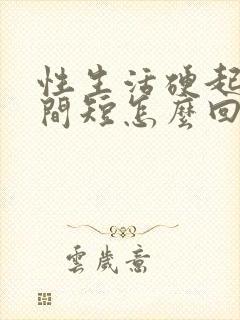 性生活硬起
間短怎麼回
雲歲意